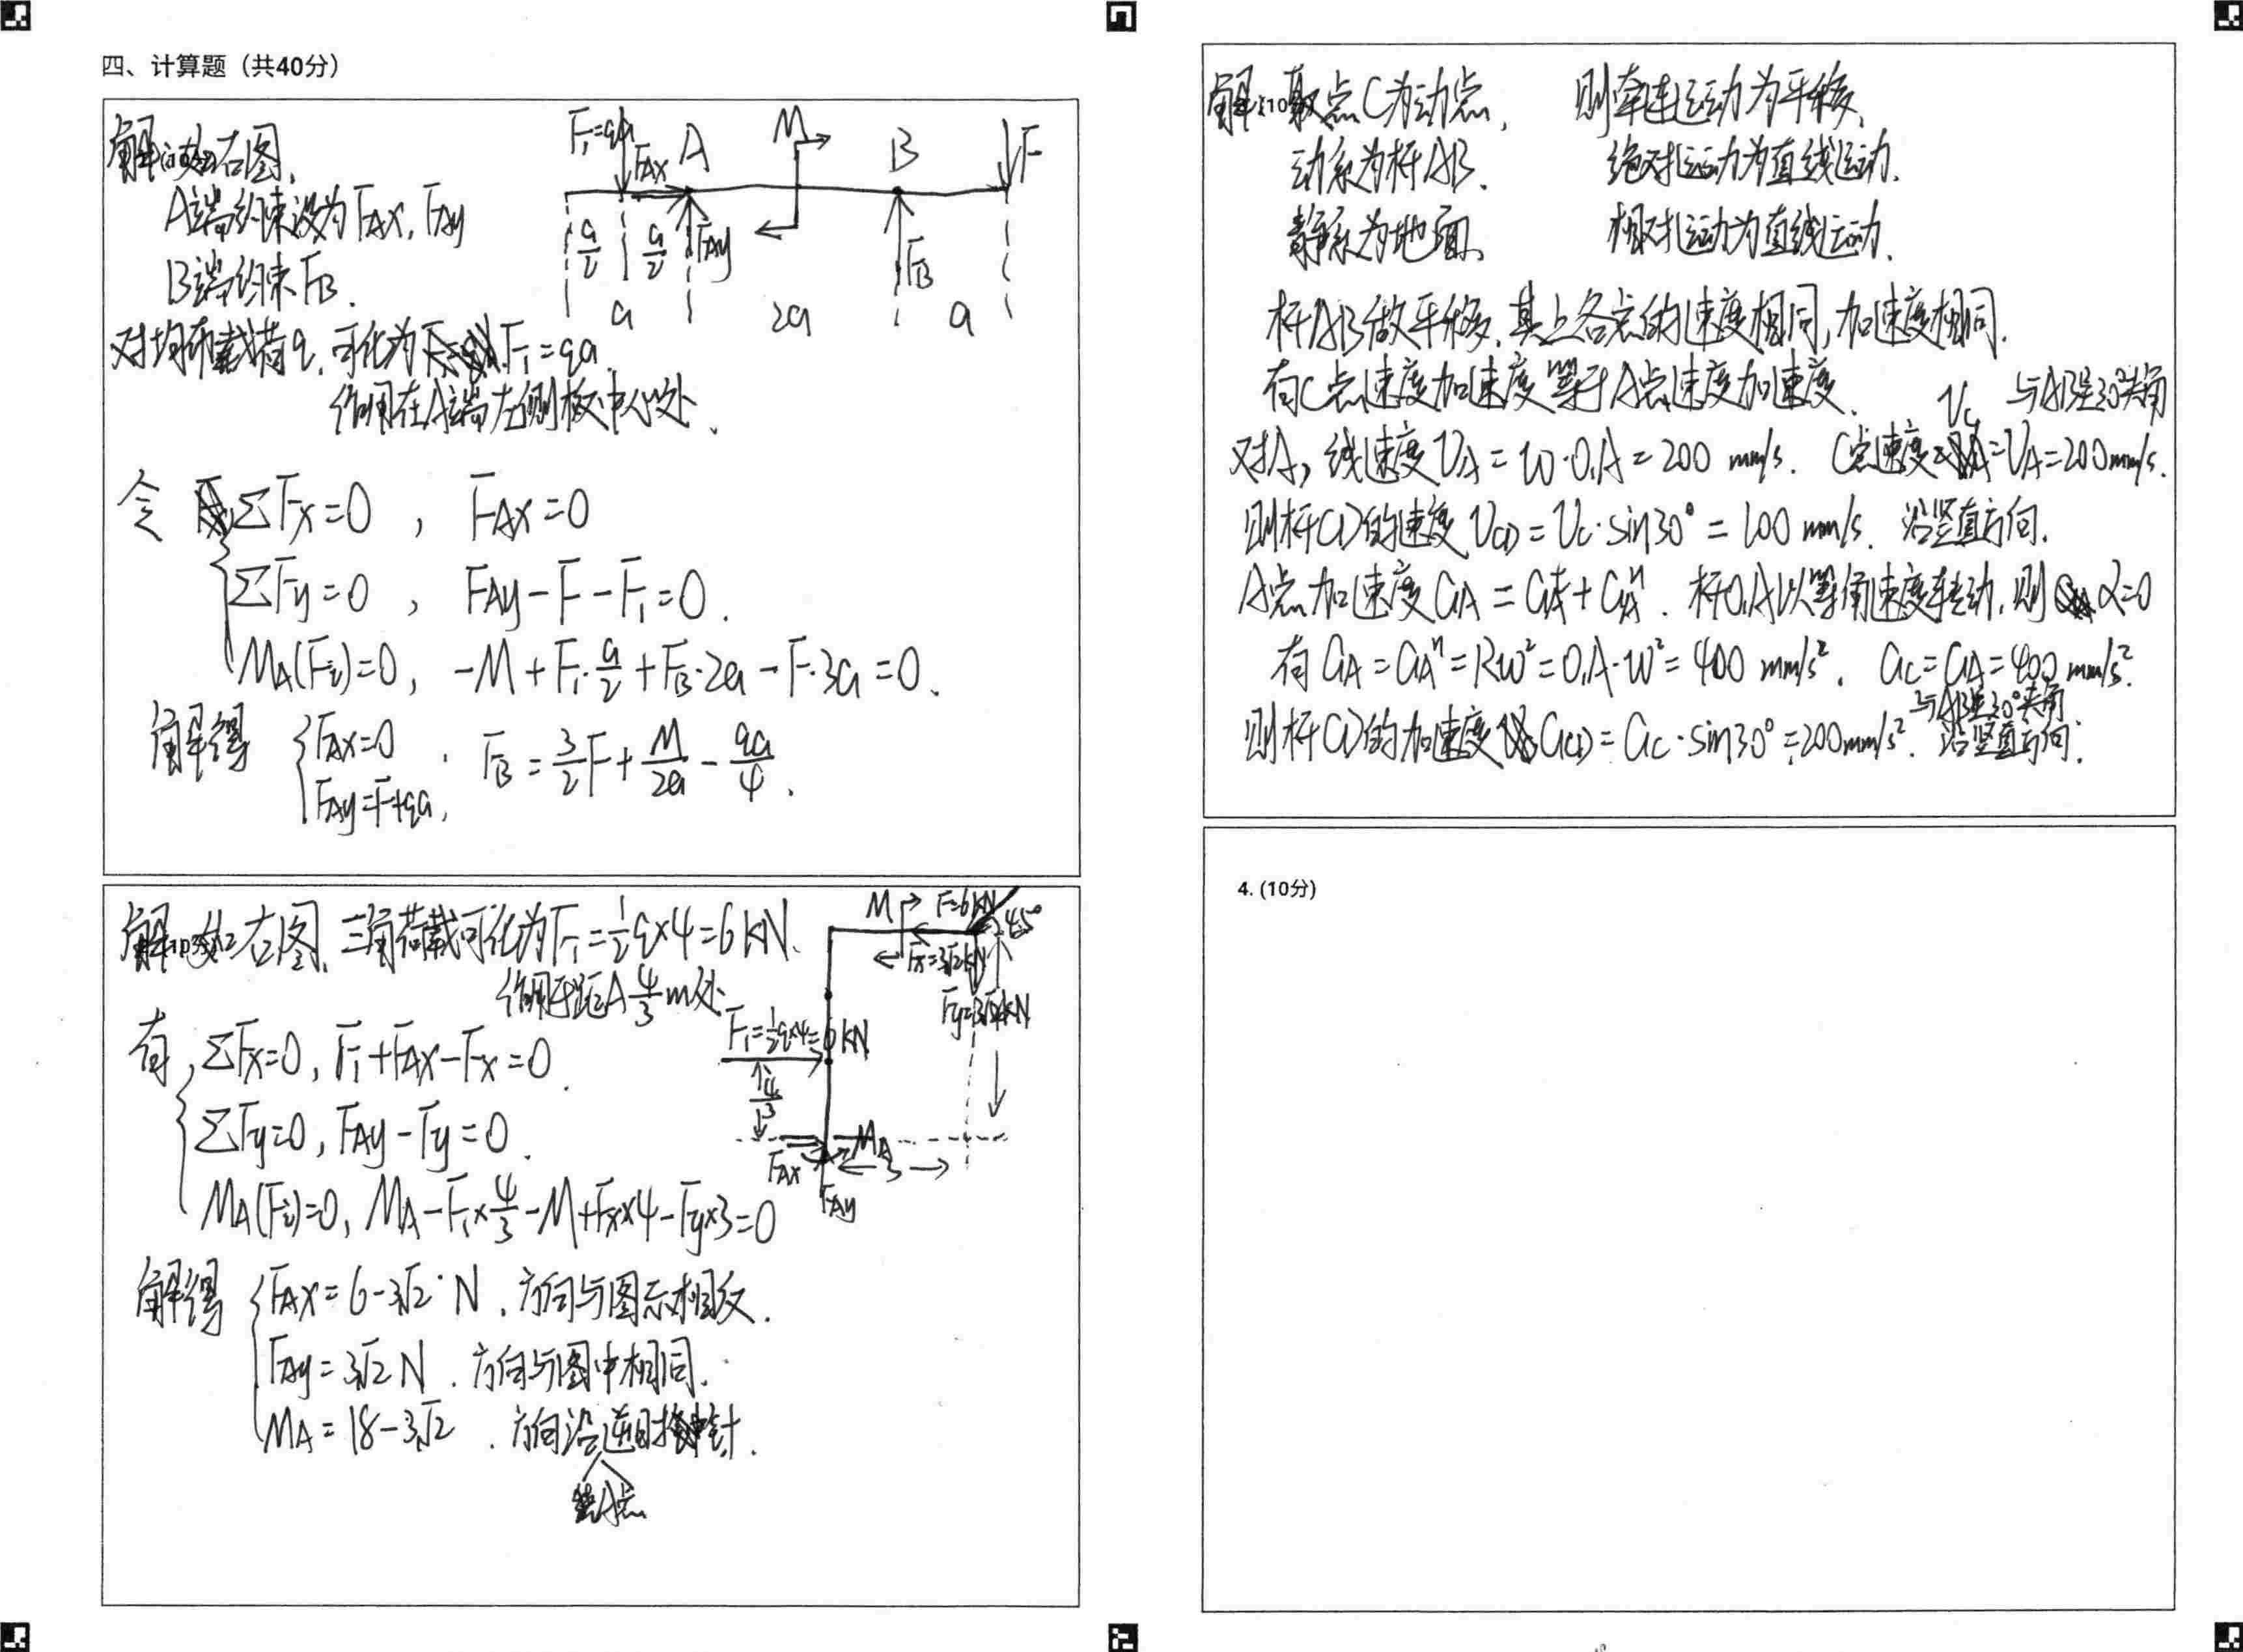 四、计算题（共40分）
解：如右图、
A端约束设为FAx, FAy
B端约束FB.
对均布载荷q, 可化为F₁=qa.
作用在A端左侧板中心处、
F₁=qa FAx A M B F
a/2 a/2 FAy FB
a 2a a
令 ΣFx=0 , FAx=0
ΣFy=0 , FAy-F-F₁=0.
MA(Fi)=0, -M+F₁·a/2+FB·2a-F·3a=0.
解得 FAx=0 , FB=3/2F+M/2a-qa/4.
FAy=F+qa,
解：如右图、三角荷载可化为F₁=1/2q×4=6kN.
作用于距A 4/3m处
M F=6kN 45°
Fx=3√2kN
Fy=3√2kN
F₁=1/2q×4=6kN
4/3
MA
FAx 3
FAy
有, ΣFx=0, F₁+FAx-Fx=0.
ΣFy=0, FAy-Fy=0.
MA(Fi)=0, MA-F₁×4/3-M+Fx×4-Fy×3=0
解得 FAx=6-3√2 N. 方向与图示相反.
FAy=3√2N. 方向与图中相同.
MA=18-3√2 . 方向沿逆时针.
绕A点
解：取点C为动点, 则牵连运动为平移、
动系为杆AB. 绝对运动为直线运动.
静系为地面、 相对运动为直线运动.
杆AB做平移, 其上各点的速度相同, 加速度相同.
有C点速度加速度等于A点速度加速度、
VC 与AB呈30°夹角
对A, 线速度VA=ω·O₁A=200 mm/s. C点速度=VA=200mm/s.
则杆CD的速度VCD=VC·sin30°=100 mm/s. 沿竖直方向.
A点加速度aA=aAᵗ+aAⁿ. 杆O₁A以等角速度转动, 则α=0
有aA=aAⁿ=Rω²=O₁A·ω²=400 mm/s². aC=aA=400mm/s².
与AB呈30°夹角
则杆CD的加速度aCD=aC·sin30°=200mm/s². 沿竖直方向.
4. (10分)